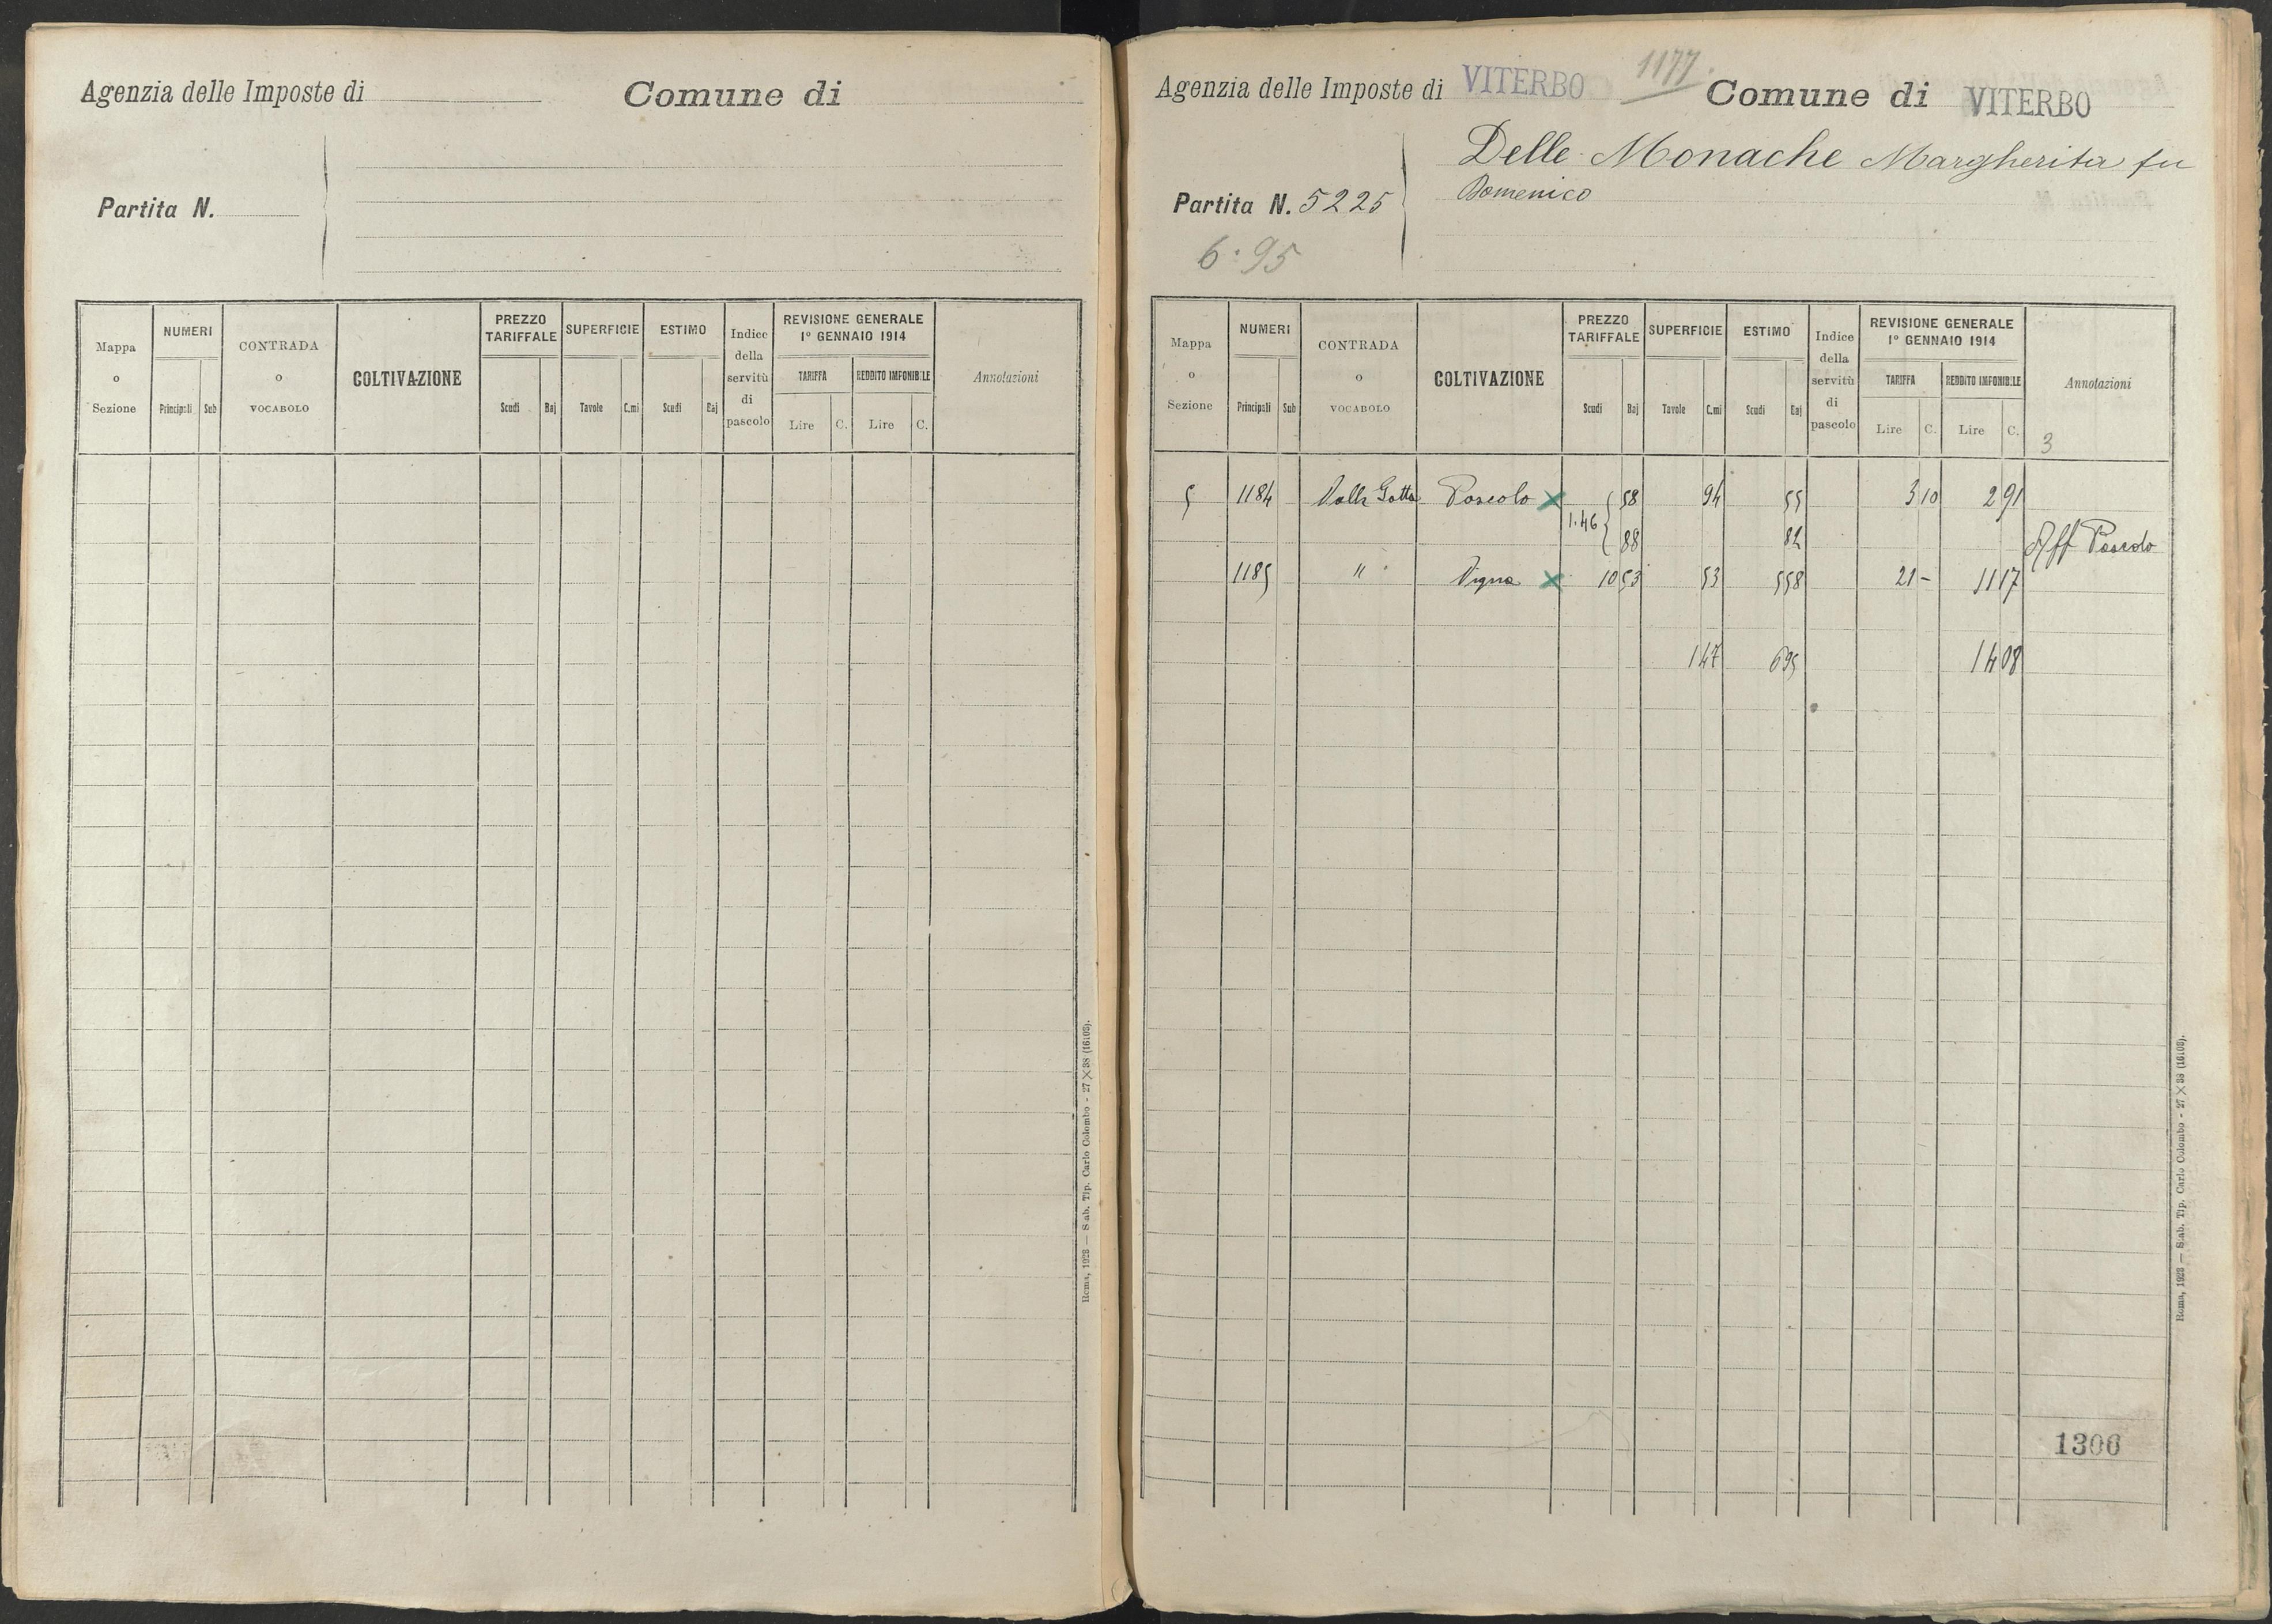 Agenzia delle Imposte di
Comune di
Partita N.
Mappa o Sezione
NUMERI
Principali Sub
CONTRADA o VOCABOLO
COLTIVAZIONE
PREZZO TARIFFALE
Scudi Baj
SUPERFICIE
Tavole C.mi
ESTIMO
Scudi Baj
Indice della servitù di pascolo
REVISIONE GENERALE
1° GENNAIO 1914
TARIFFA
Lire C.
REDDITO IMPONIBILE
Lire C.
Annotazioni
Roma, 1928 — Stab. Tip. Carlo Colombo - 27 X 38 (16108).
Agenzia delle Imposte di VITERBO
1177.
Comune di VITERBO
Delle Monache Margherita fu
Domenico
Partita N. 5225
6.95
Mappa o Sezione
NUMERI
Principali Sub
CONTRADA o VOCABOLO
COLTIVAZIONE
PREZZO TARIFFALE
Scudi Baj
SUPERFICIE
Tavole C.mi
ESTIMO
Scudi Baj
Indice della servitù di pascolo
REVISIONE GENERALE
1° GENNAIO 1914
TARIFFA
Lire C.
REDDITO IMPONIBILE
Lire C.
Annotazioni
3
5 1184 Gatta Pascolo x 58 94 55 3 10 2 91
1.46 88 82 Aff Pascolo
1185 " Vigna x 10 53 53 5 58 21 - 11 17
1 47 6 95 14 08
1306
Roma, 1928 — Stab. Tip. Carlo Colombo - 27 X 38 (16108).